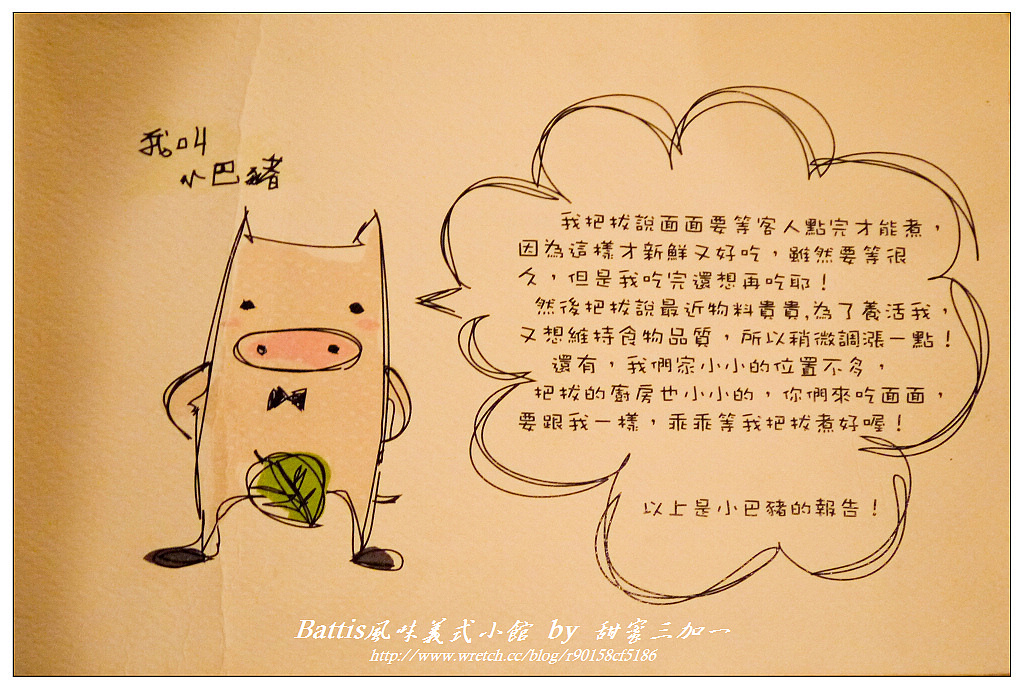 我叫
小巴豬
我把拔說面面要等客人點完才能煮，
因為這樣才新鮮又好吃，雖然要等很
久，但是我吃完還想再吃耶！
然後把拔說最近物料貴貴,為了養活我，
又想維持食物品質，所以稍微調漲一點！
還有，我們家小小的位置不多，
把拔的廚房也小小的，你們來吃面面，
要跟我一樣，乖乖等我把拔煮好喔！
以上是小巴豬的報告！
Battis風味義式小館 by 甜蜜三加一
http://www.wretch.cc/blog/r90158cf5186